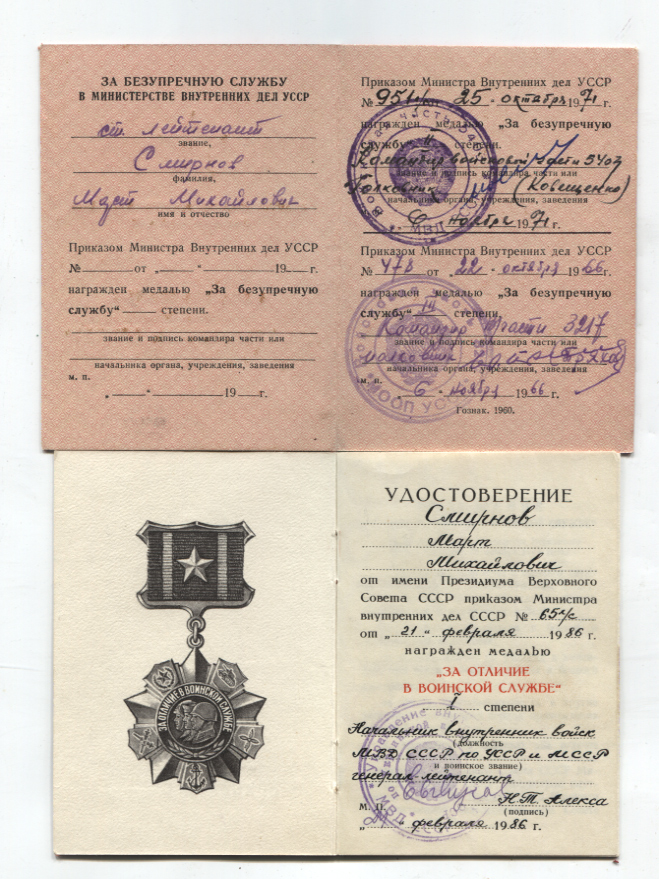 ЗА БЕЗУПРЕЧНУЮ СЛУЖБУ
В МИНИСТЕРСТВЕ ВНУТРЕННИХ ДЕЛ УССР
ст. лейтенант
звание,
Смирнов
фамилия,
Март Михайлович
имя и отчество
Приказом Министра Внутренних дел УССР
№ от „ “ 19 г.
награжден медалью „За безупречную
службу“ степени.
звание и подпись командира части или
начальника органа, учреждения, заведения
м. п.
„ “ 19 г.
Приказом Министра Внутренних дел УССР
№ 951 25 октябрь 1971 г.
награжден медалью „За безупречную
службу“ II степени.
Командир войсковой части 5402
звание и подпись командира части или
Полковник (Ковищенко)
начальника органа, учреждения, заведения
6 ноября 1971 г.
МВД
Приказом Министра Внутренних дел УССР
№ 478 от 22 октября 1966 г.
награжден медалью „За безупречную
службу“ III степени,
Командир части 3217
звание и подпись командира части или
полковник
начальника органа, учреждения, заведения
м. п.
6 ноября 1966 г.
МООП УССР
Гознак. 1960.
ЗА ОТЛИЧИЕ В ВОИНСКОЙ СЛУЖБЕ
УДОСТОВЕРЕНИЕ
Смирнов
Март
Михайлович
от имени Президиума Верховного
Совета СССР приказом Министра
внутренних дел СССР № 65л/с
от „21“ февраля 1986 г.
награжден медалью
„ЗА ОТЛИЧИЕ
В ВОИНСКОЙ СЛУЖБЕ“
I степени
Начальник внутренних войск
(должность
МВД СССР по УССР и МССР
и воинское звание)
генерал-лейтенант
Н.Т. Алекса
М. П. (подпись)
„ “ февраля 1986 г.